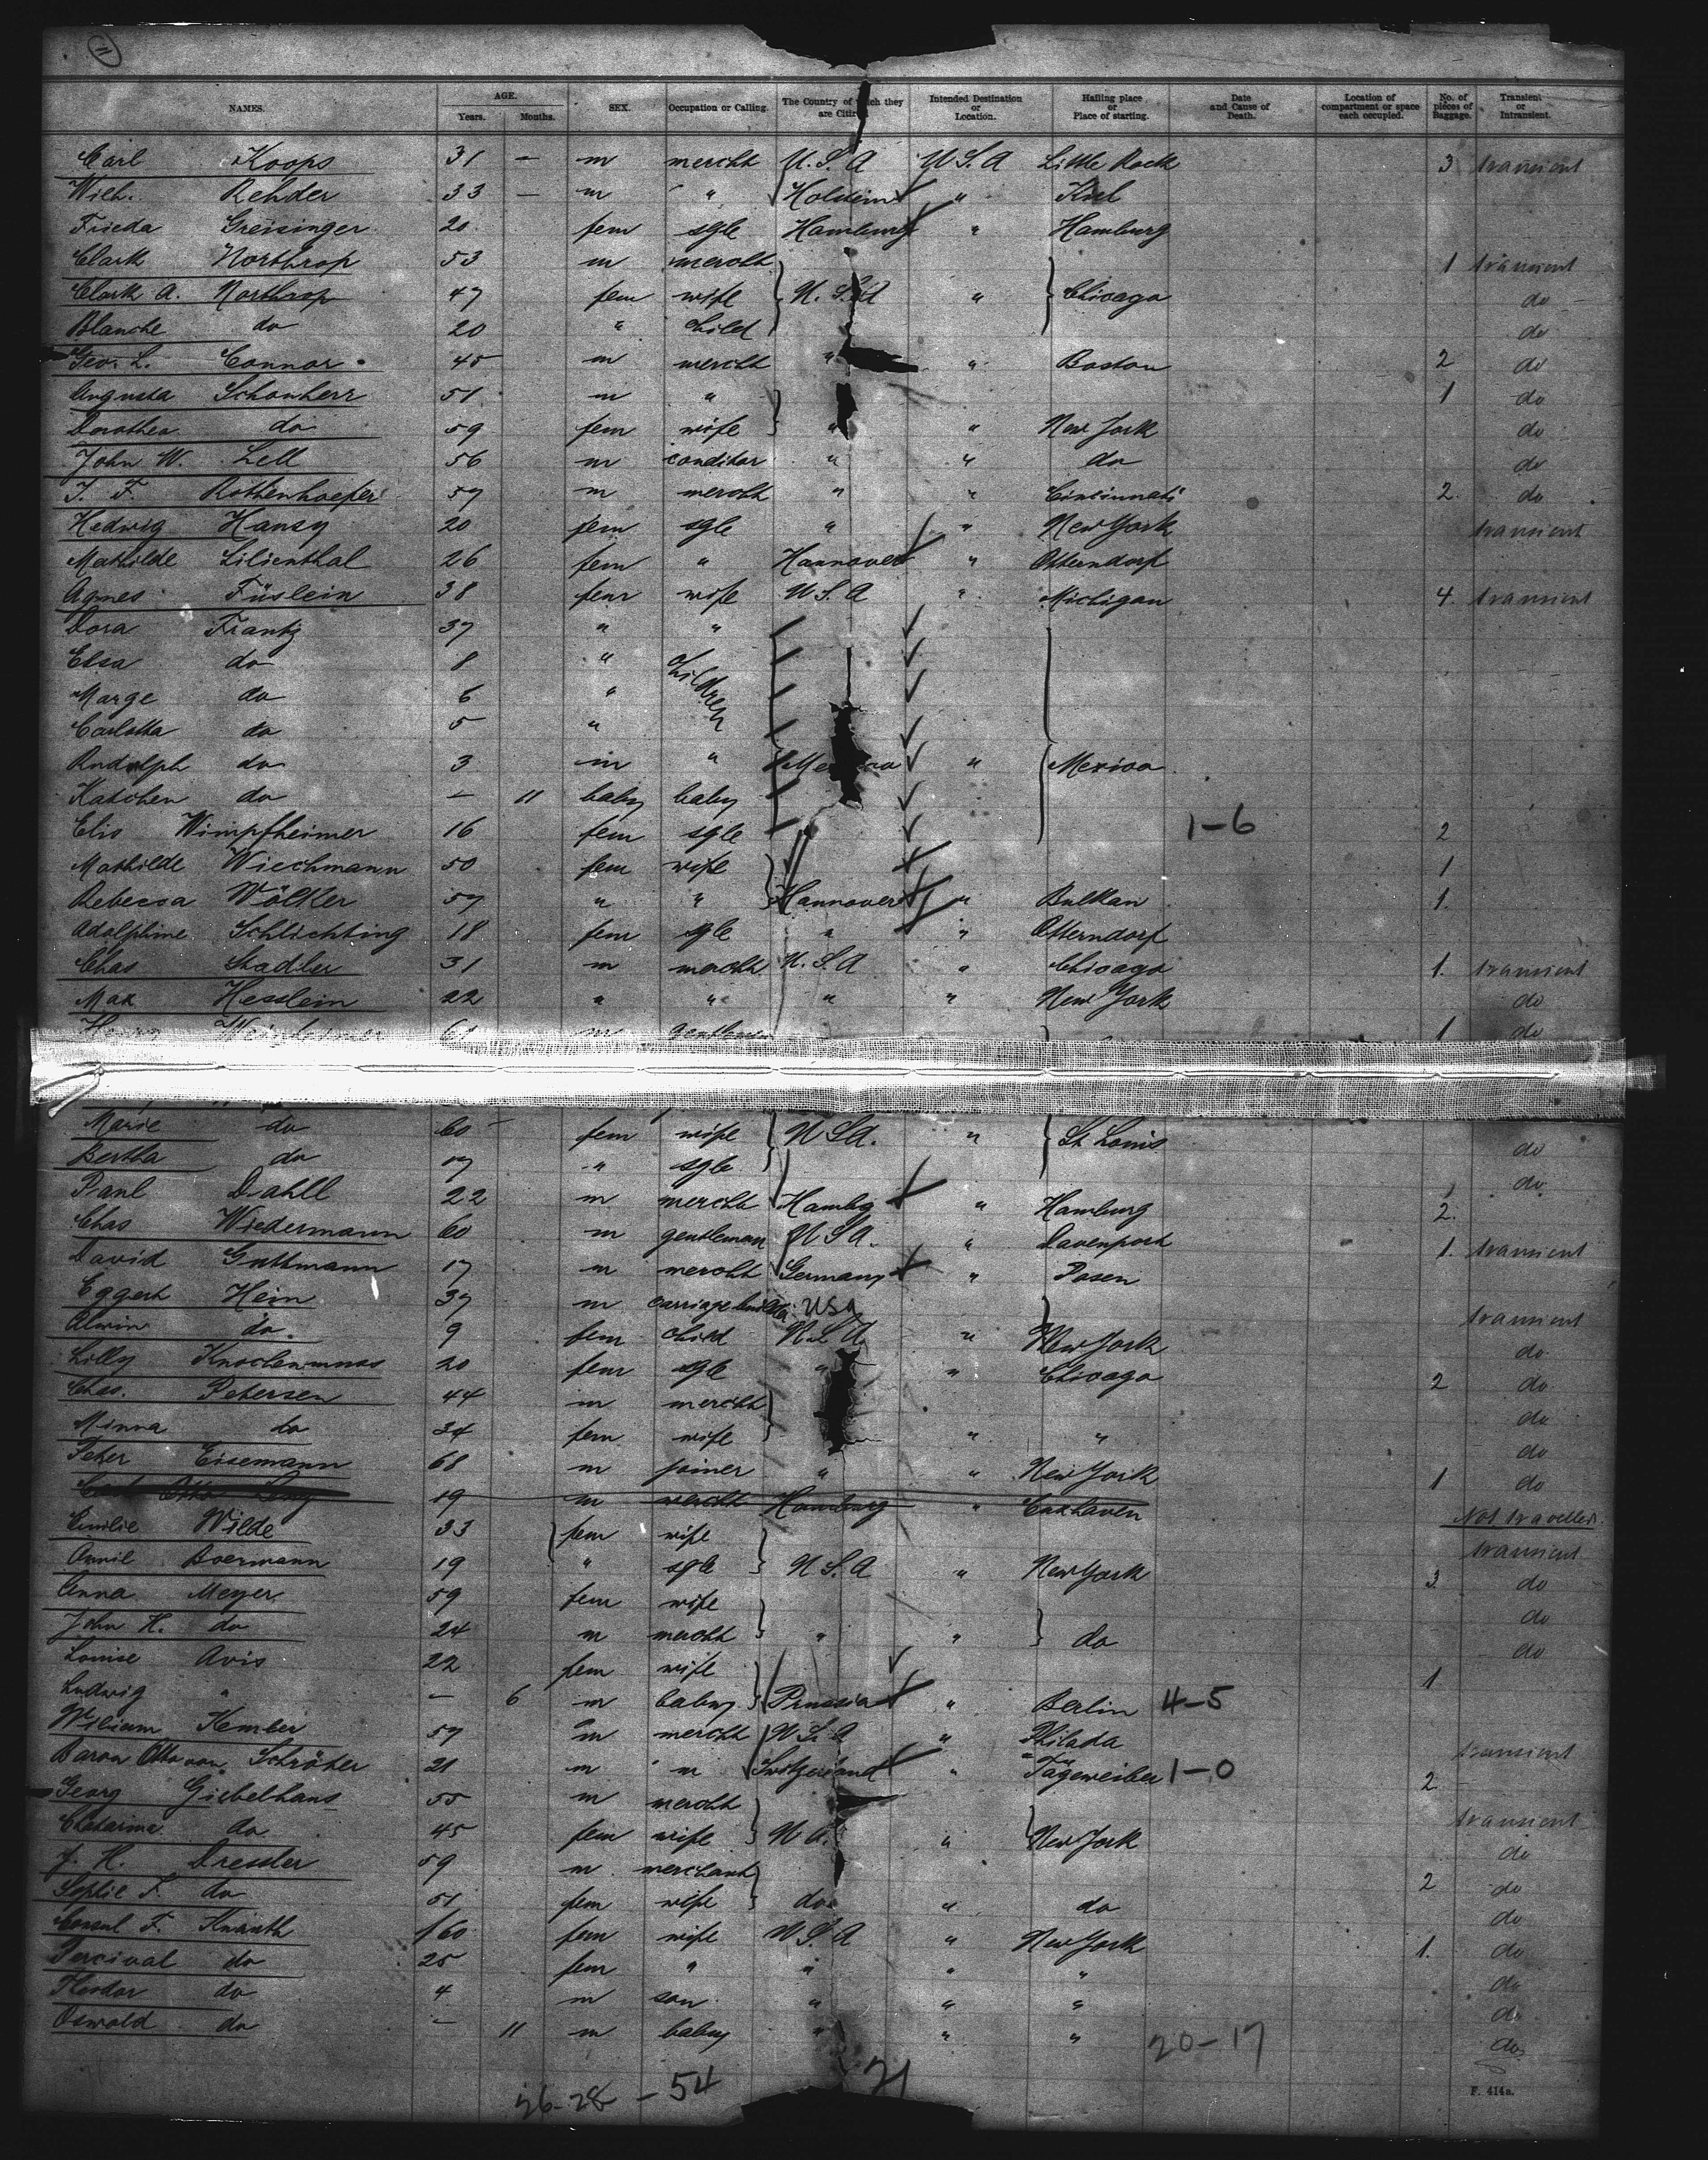 11
NAMES. AGE. Years. Months. SEX. Occupation or Calling. The Country of which they are Citiz Intended Destination or Location. Hailing place or Place of starting. Date and Cause of Death. Location of compartment or space each occupied. No. of pieces of Baggage. Transient or Intransient.
Carl Koops 31 — m mercht U.S.A U.S.A Little Rock 3 transient
Wilh. Rehder 33 — m " Holstein " Kiel
Frieda Greisinger 20 fem sgle Hamburg " Hamburg
Clark Northrop 53 m mercht 1 transient
Clark A. Northrop 47 fem wife U.S.A " Chicago do
Blanche do 20 " child do
Geo. L. Connor 45 m mercht " " Boston 2 do
Augusta Schonherr 51 m " 1 do
Dorothea do 59 fem wife " " New York do
John W. Lell 56 m conditor " " do do
J. F. Rothenhoefer 57 m mercht " " Cincinnati 2 do
Hedwig Hansy 20 fem sgle " " New York transient
Mathilde Lilienthal 26 fem " Hannover " Otterndorf
Agnes Füslein 38 fem wife U.S.A " Michigan 4 transient
Dora Frantz 37 " "
Elsa do 8 " children
Marge do 6 "
Carlotta do 5 "
Rudolph do 3 m " " Mexico
Katchen do — 11 baby baby
Elis Wimpfheimer 16 fem sgle 1-6 2
Mathilde Wiechmann 50 fem wife 1
Rebecca Wölker 57 " " Hannover " Bulkau 1.
Adolphine Schlichting 18 fem sgle " " Otterndorf
Chas Stadler 31 m mercht U.S.A " Chicago 1. transient
Max Hesslein 22 " " " " New York do
61 m gentleman 1 do
Marie do 60 — fem wife U.S.A. " St Louis do
Bertha do 17 " sgle do
Paul Dahll 22 m mercht Hambg " Hamburg 2.
Chas Wiedermann 60 m gentleman U.S.A. " Davenport 1. transient
David Guttmann 17 m mercht Germany " Posen
Eggert Hein 37 m carriage builder USA transient
Alwin do 9 fem child U.S.A " New York do
Lilly Knochenmuss 20 fem sgle " " Chicago 2 do
Chas. Petersen 44 m mercht do
Minna do 34 fem wife " " do
Peter Eisemann 68 m joiner " " New York 1 do
19 m mercht Hamburg " Cuxhaven Not traveller.
Emilie Wilde 33 fem wife transient
Annie Boermann 19 " sgle U.S.A " New York 3 do
Anna Meyer 59 fem wife do
John H. do 24 m mercht " " do do
Louise Avis 22 fem wife 1
Ludwig " — 6 m baby Prussia " Berlin 4-5
William Kember 57 m mercht U.S.A " Philada transient
Baron Otto von Schröter 21 m " Switzerland " 1-0 2
Georg Giebelhaus 55 m mercht transient
Chatarina do 45 fem wife U " New York do
J. H. Dressler 59 m merchant 2 do
Sophie F. do 51 fem wife do " do do
Consul F. Knauth 60 fem wife U.S.A " New York 1. do
Percival do 25 fem " " " " do
Theodor do 4 m son " " " do
Oswald do — 11 m baby " " " 20-17 do
26-28 - 54 21
F. 414a.